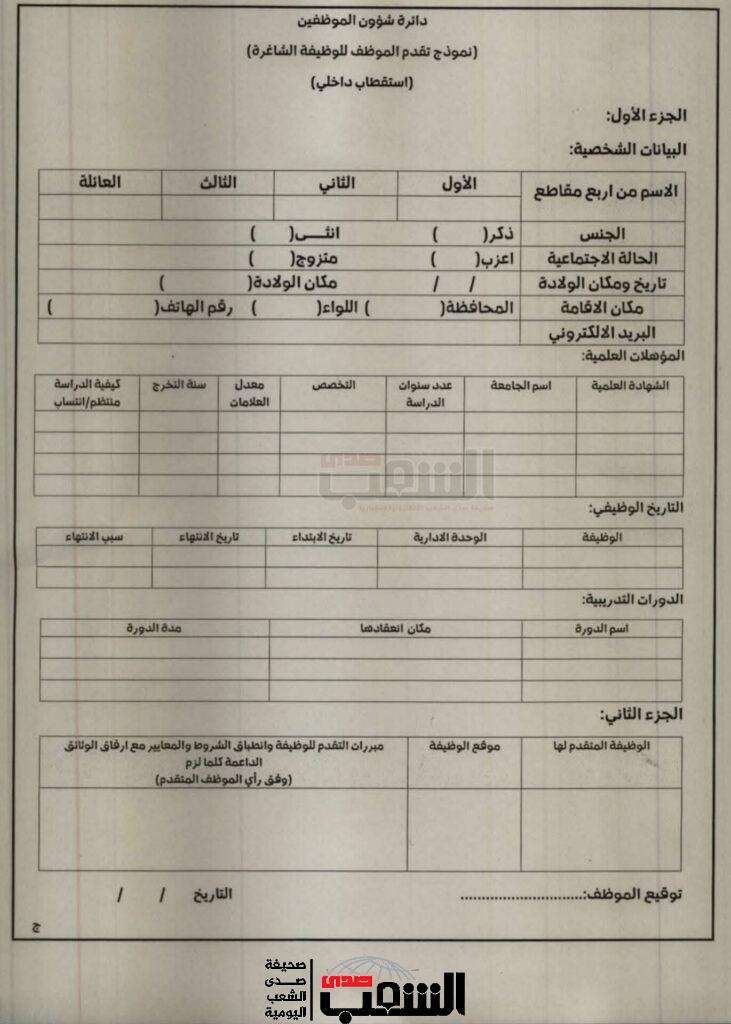 دائرة شؤون الموظفين
(نموذج تقدم الموظف للوظيفة الشاغرة)
(استقطاب داخلي)
الجزء الأول:
البيانات الشخصية:
الاسم من اربع مقاطع الأول الثاني الثالث العائلة
الجنس ذكر( ) انثى( )
الحالة الاجتماعية اعزب( ) متزوج( )
تاريخ ومكان الولادة / / مكان الولادة( )
مكان الاقامة المحافظة( ) اللواء( ) رقم الهاتف( )
البريد الالكتروني
المؤهلات العلمية:
الشهادة العلمية اسم الجامعة عدد سنوات الدراسة التخصص معدل العلامات سنة التخرج كيفية الدراسة منتظم/انتساب
صدى الشعب
التاريخ الوظيفي:
الوظيفة الوحدة الادارية تاريخ الابتداء تاريخ الانتهاء سبب الانتهاء
الدورات التدريبية:
اسم الدورة مكان انعقادها مدة الدورة
الجزء الثاني:
الوظيفة المتقدم لها موقع الوظيفة مبررات التقدم للوظيفة وانطباق الشروط والمعايير مع ارفاق الوثائق
الداعمة كلما لزم
(وفق رأي الموظف المتقدم)
توقيع الموظف:............................ التاريخ / /
ج
صدى الشعب
صحيفة
صدى
الشعب
اليومية